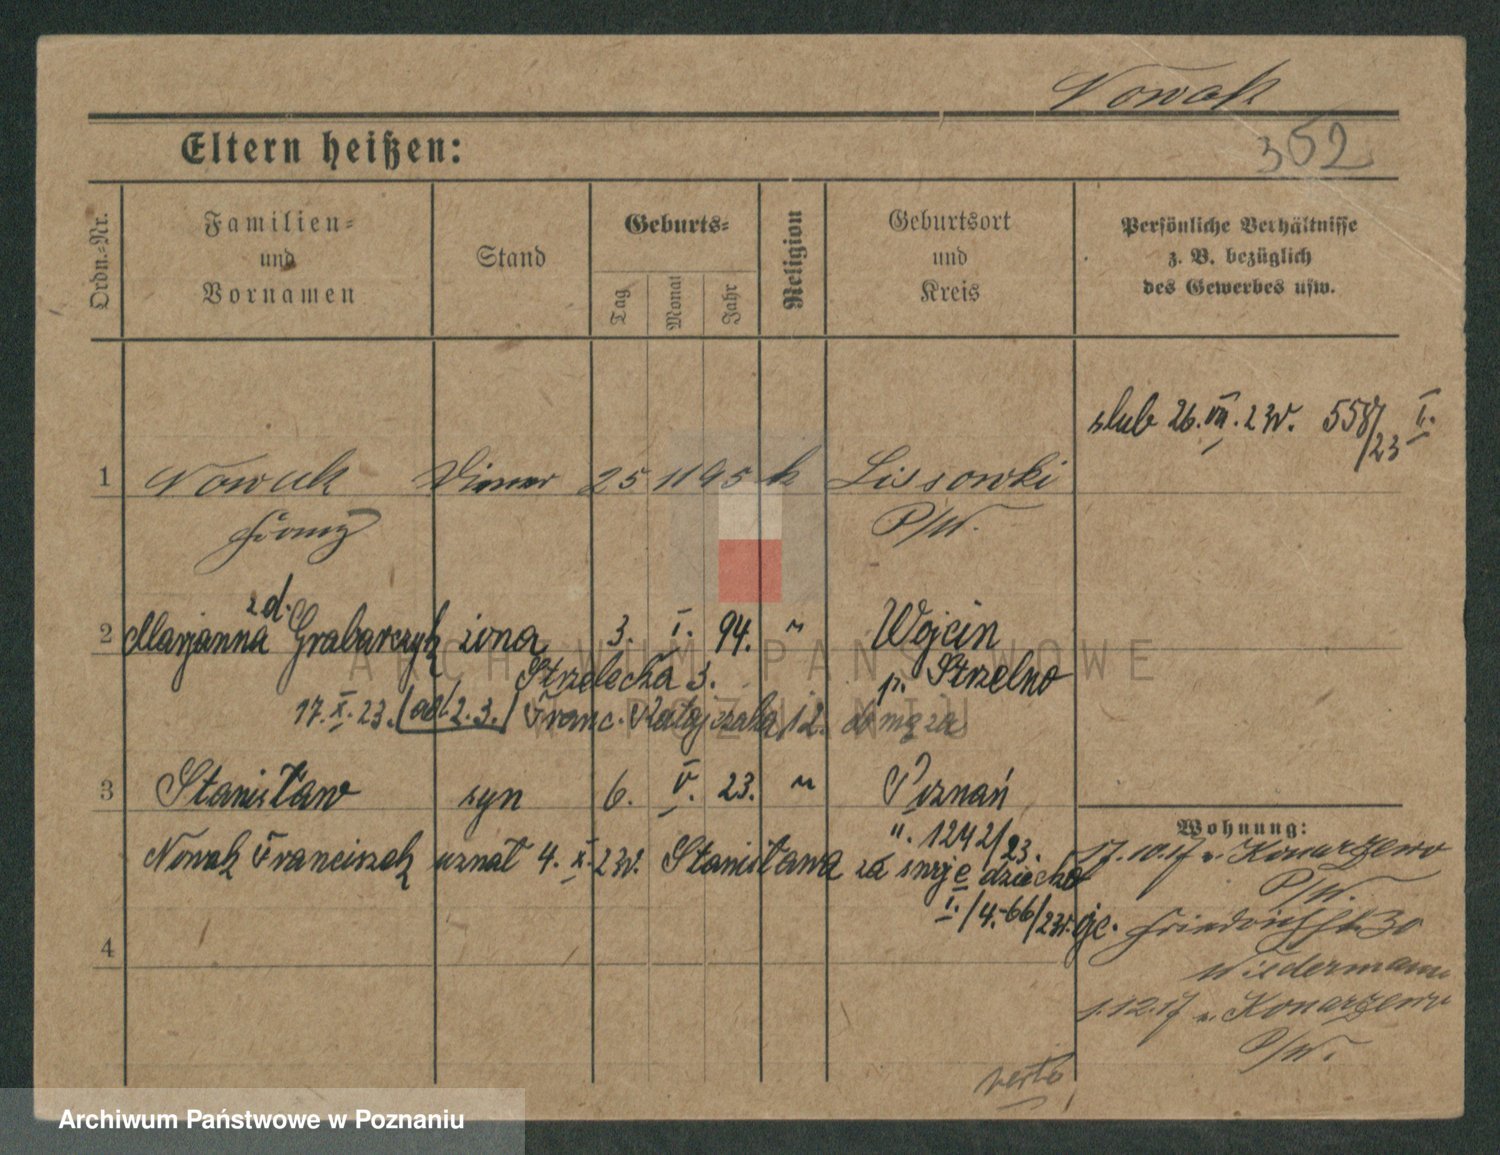 Nowak
352
Eltern heißen:
Ordn.-Nr.
Familien-
und
Vornamen
Stand
Geburts-
Tag
Monat
Jahr
Religion
Geburtsort
und
Kreis
Persönliche Verhältnisse
z. B. bezüglich
des Gewerbes usw.
ślub 26. VII. 23r. 558/23 I.
1 Nowak Diener 25 11 95 k Lissowki
Franz P/W.
zd.
2 Marjanna Grabarczyk żona 3. I. 94. " Wojcin
Strzelecka 3. p. Strzelno
17. X. 23. (od 2.3.) Franc. Ratajczaka 12. do męża
3 Stanisław syn 6. V. 23. " Poznań
". 1242/23.
Nowak Franciszek uznał 4. X. 23r. Stanisława za swoje dziecko
I./4.-66/23r.
4
Wohnung:
17.10.17 v. Konarzewo
P/W.
Friedrichstr. 30
Wiedermann
1.12.17 n. Konarzewo
P/W.
verte
ARCHIWUM PAŃSTWOWE
W POZNANIU
Archiwum Państwowe w Poznaniu